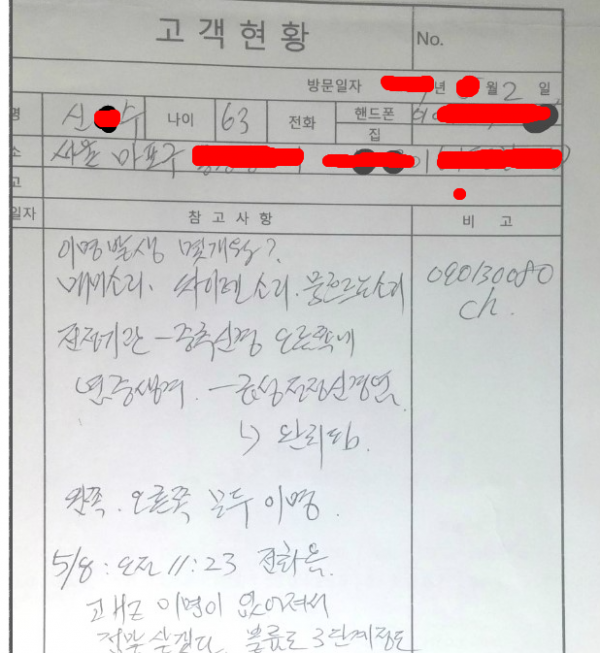 고 객 현 황
No.
방문일자 년 월 2 일
명 신 수 나이 63 전화 핸드폰
집
소 서울 마포구
고
일자 참 고 사 항 비 고
이명발생 몇개월?
매미소리. 싸이렌소리. 물흐르는소리 090130080
ch.
전정기관 - 중추신경 오른쪽에
염증생겨. - 급성전정신경염
↳ 완치됨.
왼쪽. 오른쪽 모두 이명.
5/8 : 오전 11:23 전화옴.
고새로 이명이 없어져서
정말 살겠다. 볼륨도 3단계정도